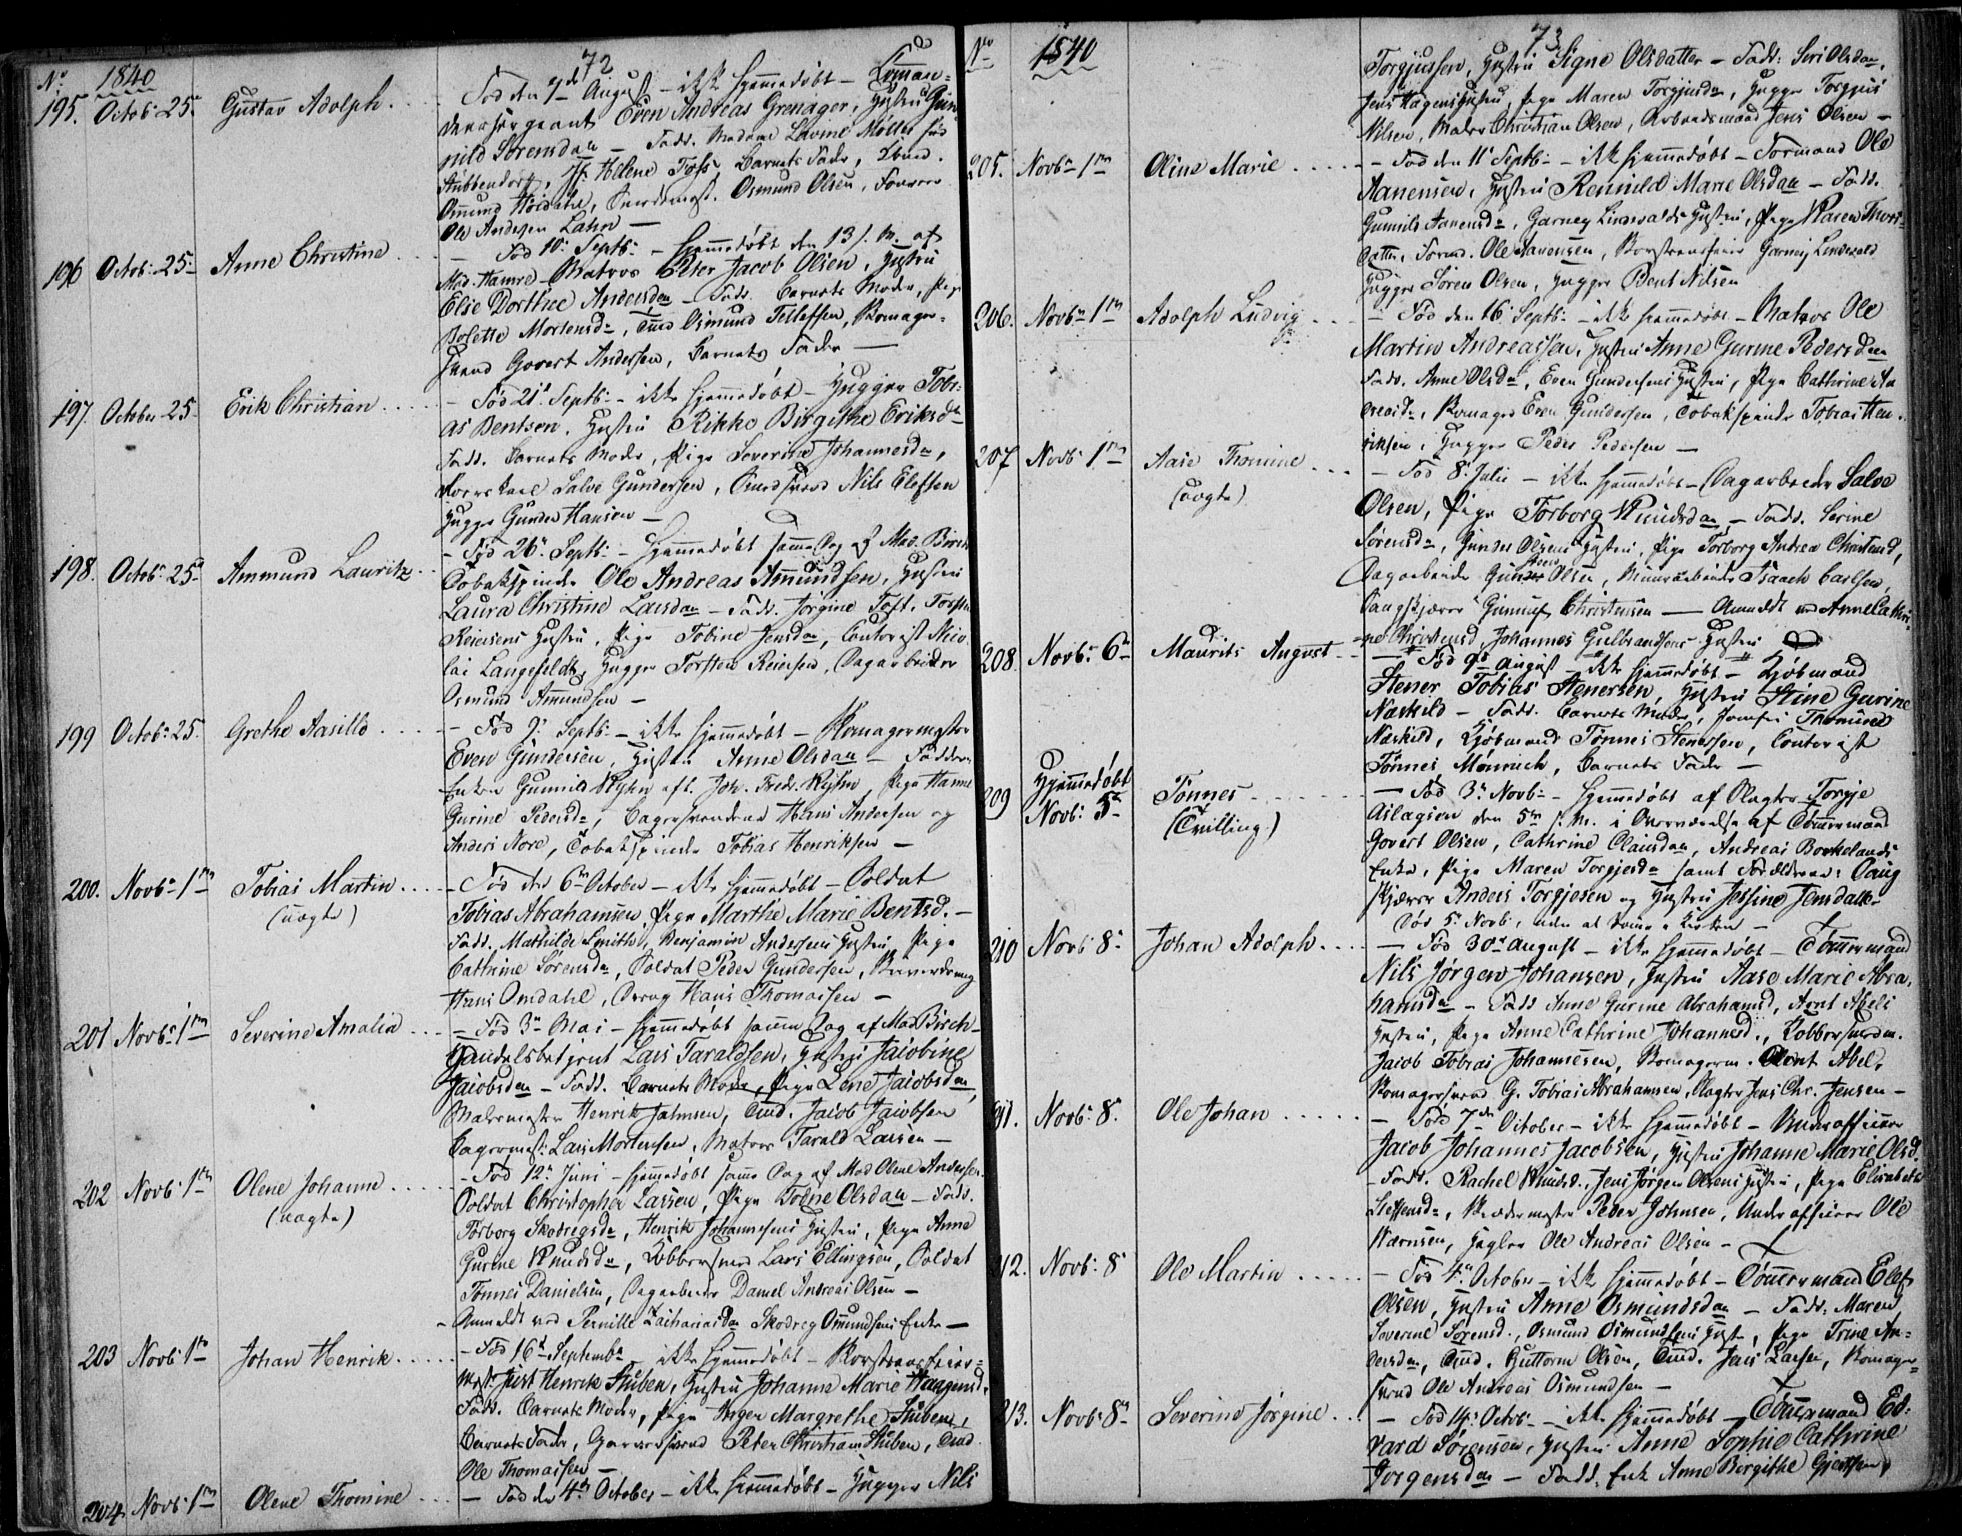 72
No 1840
195. Octob: 25. Gustav Adolph.
Fød den 7de August – ikke hjemmedøbt –
Even Andreas Grenager, Hustru Gun
nild Sørensdan – Fadd. Madame Lavine Møller fød
Stubbendorf, Helene Foss, Barnets Fader,
Omund Hordahl, Osmund Olsen,
Ole Andersen Lahn –
196 Octob: 25 Anne Christine
– Fød 10: Septb: – hjemmedøbt den 13 s. M. af
Mad. Hamre – Matros Peter Jacob Olsen, Hustru
Else Dorthee Andersdan – Fadd. Barnets Moder, Pige
Bolette Mortensdn, Osmund Tellefsen, Skomager-
svend Govert Andersen, Barnets Fader –
197. October 25. Erik Christian
– Fød 21: Septb: – ikke hjemmedøbt – Hugger Tobi-
as Bentsen, Hustru Rikke Birgithe Eriksdn
Fadd. Barnets Moder, Pige Severine Johannesdn,
Salve Gundersen, Nils Elefsen
Hugger Gunder Hansen –
198. Octob: 25 Ammund Lauritz
– Fød 26: Septb: – hjemmedøbt samme Dag af Mad. Birch
Tobakspinder Ole Andreas Amundsen, Hustru
Laura Christine Larsdan – Fadd. Jørgine Toft, Torsten
Reiersens Hustru, Pige Tobine Jensdan, Contorist Nico
lai Langefeldt, Hugger Torsten Reiersen, Dagarbeider
Osmund Amundsen –
199 Octob: 25. Grethe Aasille
– Fød 9: Septb: – ikke hjemmedøbt – Skomagermester
Even Gundersen, Hustru Anne Olsdan – Faddere
Enken Gunnild Ryhn eft. Joh. Fredr. Ryhn Pige Hanne
Gurine Pedersdn, Bagersvendene Hans Andersen og
Anders Nore, Tobakspinder Tobias Henriksen –
200. Novb: 1ste Tobias Martin
(uægte)
– Fød den 6te October – ikke hjemmedøbt – Soldat
Tobias Abrahamsen Pige Marthe Marie Bentsd. –
Fadd. Mathilde Smith, Benjamin Andersens Hustru, Pige
Cathrine Sørensdn, Soldat Peder Gundersen,
Hans Omdahl, Hans Thomassen –
201 Novb: 1ste Severine Amalia
– Fød 3: Mai – hjemmedøbt samme Dag af Mad Birch –
Handelsbetjent Lars Taraldsen, Hustru Jacobine
Jacobsdan – Fadd. Barnets Moder, Pige Lene Jacobsdan,
Malermester Henrik Jahnsen, Tmd. Jacob Jacobsen
Bagermest: Lars Mortensen, Matros Tarald Larsen –
202 Novb: 1ste Olene Johanne
(uægte)
– Fød 12te Juni – hjemmedøbt samme Dag af Mad Olene Andersen
Soldat Christopher Larsen, Pige Tolne Olsdan – Fadd.
Torborg Skodregsdn, Henrik Johannesens Hustru, Pige Anne
Gurine Knudsdn, Kobbersmed Lars Ellingsen, Soldat
Tønnes Danielsen, Dagarbeider Daniel Andreas Olsen –
– Anmeldt ved Pernille Zachariasdn Skodreg Omundsens Enke –
203 Novb: 1ste Johan Henrik
– Fød 16de September ikke hjemmedøbt – Skorsteensfeier-
mest: Just Henrik Stuben, Hustru Johanne Marie Haagensd.
Fadd. Barnets Moder, Pige Inger Margrethe Stuben,
Barnets Fader, Garversvend Peter Christian Stuben, Tmd.
Ole Thomassen –
204 Novb: 1ste Olene Thomine
– Fød den 4de October – ikke hjemmedøbt – Hugger Nils
73
No 1840
Torgjussen, Hustru Signe Olsdatter – Fadd: Siri Olsdan,
Jens Hagens Hustru, Pige Maren Torgjusdn, Hugger Torgjus
Nilsen, Maler Christian Olsen, Arbeidsmand Jens Olsen –
205. Novb: 1ste Oline Marie
– Fød den 11: Septb: – ikke hjemmedøbt – Formand Ole
Aanensen, Hustru Rennild Marie Olsdan – Fadd.
Gunnild Aanensdn, Garney Lindevalds Hustru, Pige Karen Thors-
datter, Formd. Ole Aanonsen, Skorsteensfeier Garney Lindevald
Hugger Søren Olsen, Hugger Bent Nilsen
206. Novb: 1ste Adolph Ludvig
– Fød den 16 Septb: – ikke hjemmedøbt – Matros Ole
Martin Andreassen, Hustru Anne Gurine Pedersdan
Fadd. Anne Olsdn, Even Gundersens Hustru, Pige Cathrine An
dreasdn, Skomager Even Gundersen, Tobakspinder Tobias Hen-
riksen, Hugger Peder Pedersen –
207 Novb: 1ste Aase Thomine
(uægte)
– Fød 8: Julii – ikke hjemmedøbt – Dagarbeider Salve
Olsen, Pige Torborg Knudsdan – Fadd. Serine
Sørensdn, Gunder Olsens Hustru, Pige Torborg Andrea Christensd,
Dagarbeider Gunder Olsen, Isaach Carlsen,
Christensen – Anmeldt ved Anne Cathri-
ne Christensd, Johannes Gulbrandsens Hustru
208. Novb: 6te Maurits August
– Fød 9de August – ikke hjemmedøbt – Kjøbmand
Stener Tobias Stenersen, Hustru Stine Gurine
Naskild – Fadd. Barnets Moder, Jomfru Thomine
Naskild, Kjøbmand Tønnes Stenersen, Contorist
Tønnes Mønnich, Barnets Fader –
209 Hjemmedøbt
Novb: 5te Tønnes
(Tvilling)
– Fød 3: Novb: – hjemmedøbt af Slagter Torgje
Aslagsen den 5te s. M. i Overværelse af Tømmermand
Govert Olsen, Cathrine Clausdan, Andreas Borkelands
Enke, Pige Maren Torgjesdn samt Forældrene: Daug
skjærer Anders Torgjesen og Hustru Jessine Jensdatter
Død 5te Novb, uden at komme i Kirken –
210 Novb: 8: Johan Adolph
– Fød 30te August – ikke hjemmedøbt – Tømmermand
Nils Jørgen Johansen, Hustru Aase Marie Abra-
hamsdn – Fadd Anne Gurine Abrahamsd, Arnt Abels
Hustru, Pige Anne Cathrine Johannesd., Kobbersmedm.
Jacob Tobias Johannesen, Skomagerm. Arnt Abel,
Skomagersvend G. Tobias Abrahamsen, Slagter Jens Chr. Jensen –
211. Novb: 8: Ole Johan
– Fød 7de October – ikke hjemmedøbt – Underofficeer
Jacob Johannes Jacobsen, Hustru Johanne Marie Olsd.
– Fadd. Rachel Knudsd., Jens Jørgen Olsens Hustru, Pige Elisabeth
Steffensdn, Peder Johnsen, Underofficeer Ole
Wærnsen, Ole Andreas Olsen –
212. Novb: 8 Ole Martin
– Fød 4: October – ikke hjemmedøbt – Tømmermand Elef
Olsen, Hustru Anne Osmundsdan – Fadd: Maren
Severine Sørensd., Osmund Osmundsens Hust., Pige Trine An-
dersdan, Tmd. Guttorm Olsen, Tmd. Jens Larsen, Skomager-
svend Ole Andreas Osmundsen –
213. Novb: 8de Severine Jørgine
– Fød 14: Octob: – ikke hjemmedøbt – Tømmermand Ed-
vard Sørensen, Hustru Anne Sophie Cathrine
Jørgensdan – Fadd. Enke Anne Bergithe